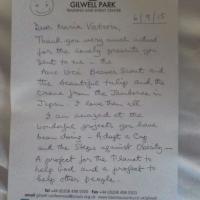 GILWELL PARK
TRAINING AND EVENT CENTRE
6/9/15
Dear Maria Victoria,
Thank you very much indeed
for the lovely presents you
sent to me - the
Beaver Scout and
the beautiful tulip and the
crane from the Jamboree in
Japan. I love them all.
I am amazed at the
wonderful projects you have
been doing - Adopt a Cop
and the Steps against Obesity -
A project for the Planet to
help God, and a project to
help other people.